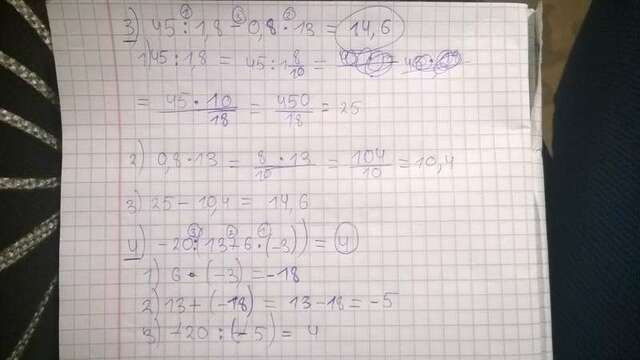 3) 45 : 1,8 - 0,8 · 13 = 14,6
1) 45 : 1,8 = 45 : 1 8/10 =
= 45 · 10/18 = 450/18 = 25
2) 0,8 · 13 = 8 · 13/10 = 104/10 = 10,4
3) 25 - 10,4 = 14,6
4) -20 : (13 + 6 · (-3)) = 4
1) 6 · (-3) = -18
2) 13 + (-18) = 13 - 18 = -5
3) -20 : (-5) = 4